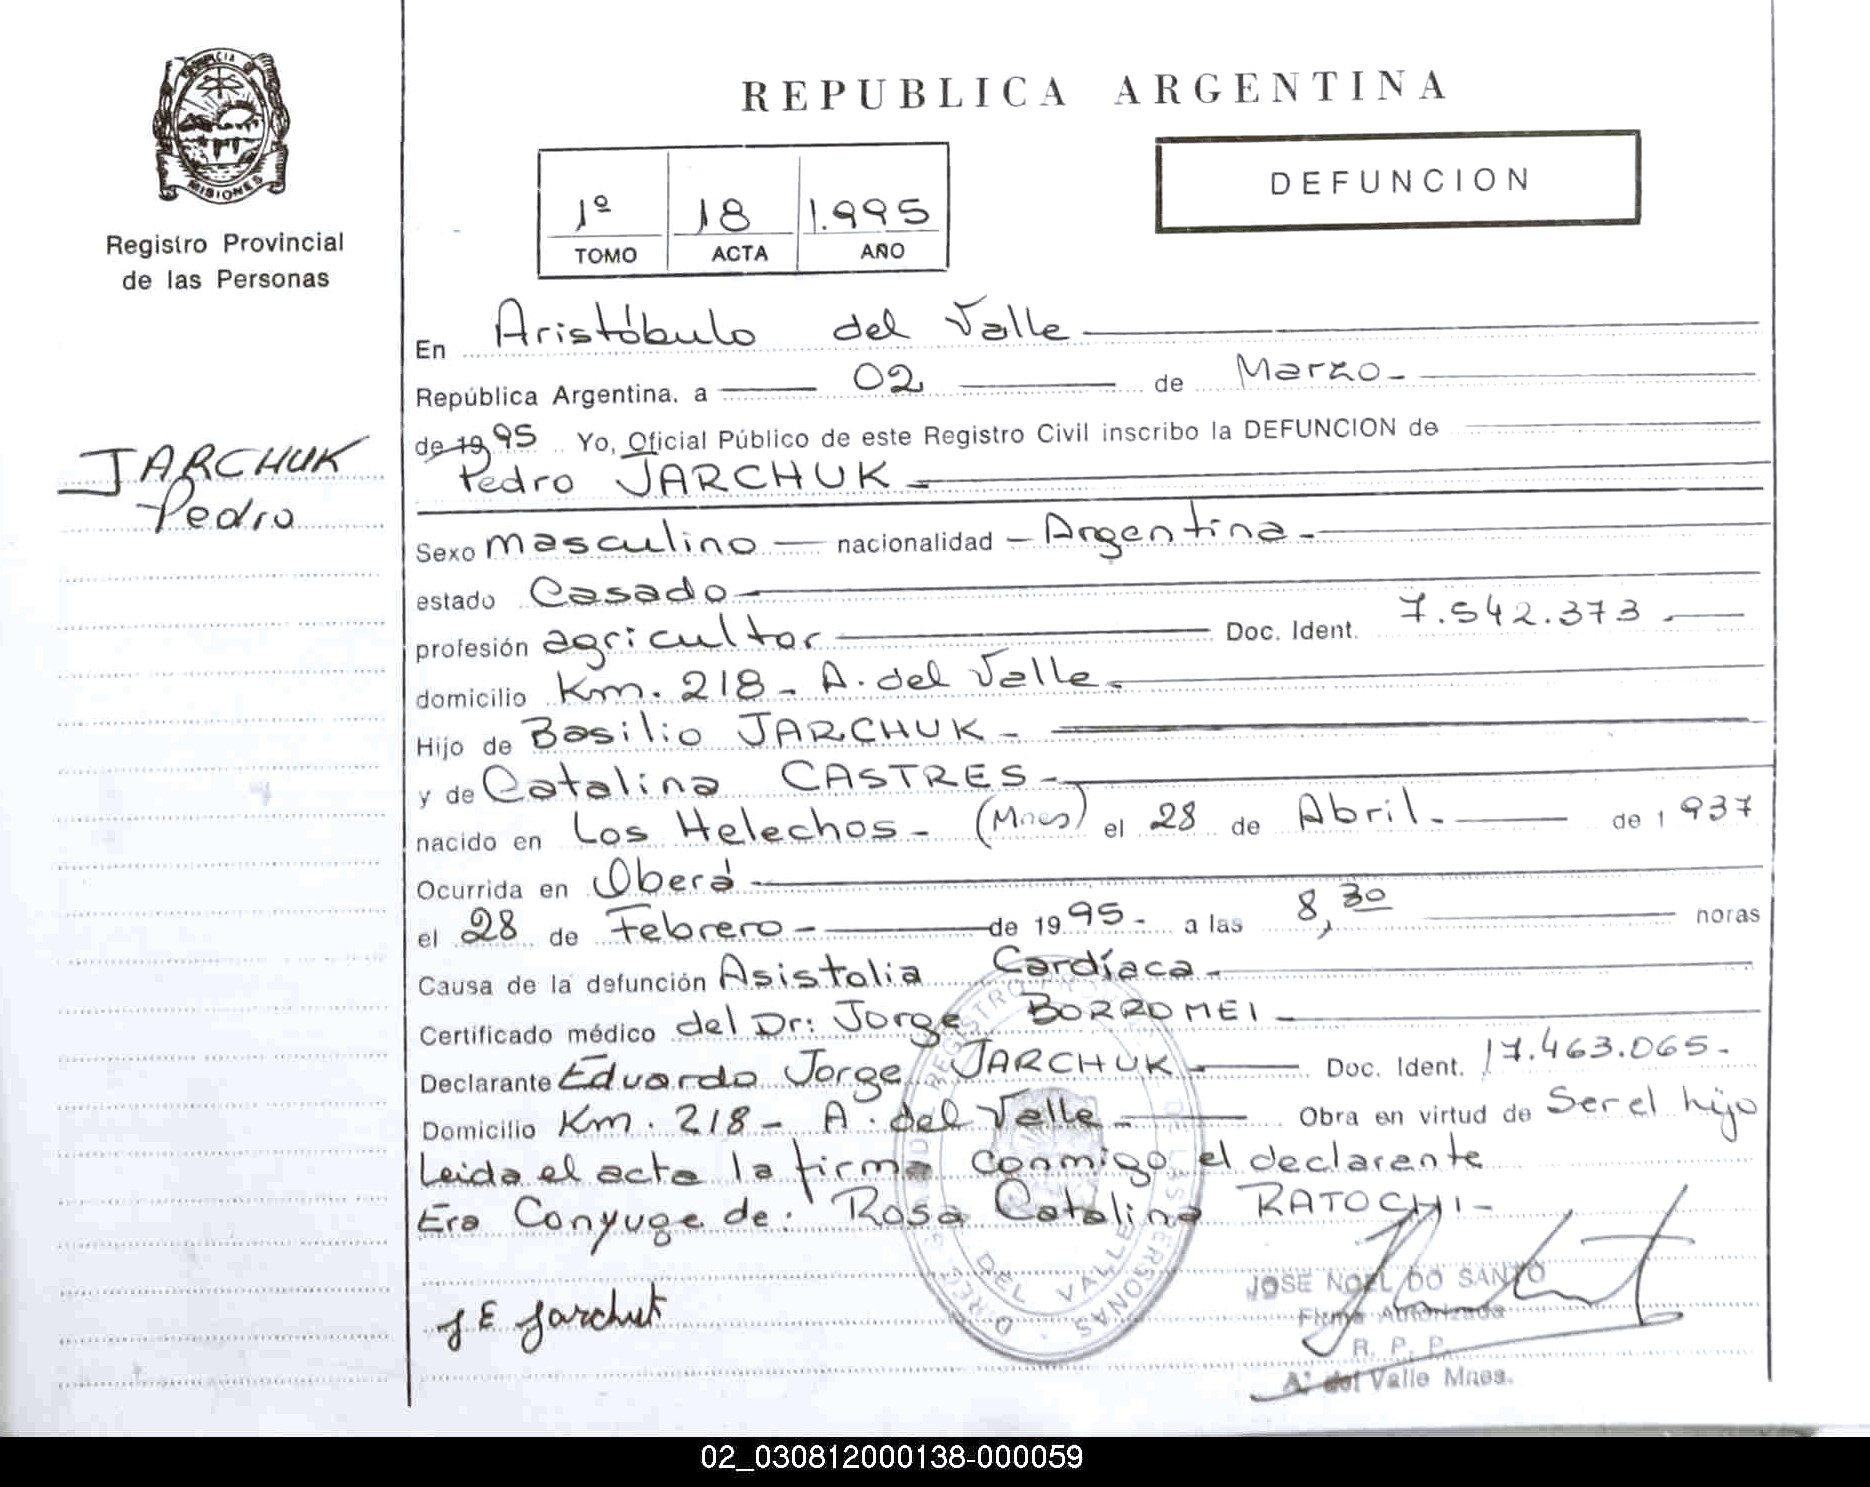 PROVINCIA D
MISIONES
Registro Provincial
de las Personas
JARCHUK
Pedro
REPUBLICA ARGENTINA
1º 18 1.995
TOMO ACTA AÑO
DEFUNCION
En Aristóbulo del Valle
República Argentina, a 02 de Marzo-
de 1995 Yo, Oficial Público de este Registro Civil inscribo la DEFUNCION de
Pedro JARCHUK
Sexo masculino nacionalidad Argentina-
estado Casado
profesión agricultor Doc. Ident. 7.542.373
domicilio Km. 218 - A. del Valle
Hijo de Basilio JARCHUK -
y de Catalina CASTRES-
nacido en Los Helechos - (Mnes) el 28 de Abril.- de 1 937
Ocurrida en Oberá
el 28 de Febrero - de 1995- a las 8,30 horas
Causa de la defunción Asistolia Cardíaca-
Certificado médico del Dr: Jorge BORROMEI
Declarante Eduardo Jorge JARCHUK Doc. Ident. 17.463.065-
Domicilio Km. 218 - A. del Valle - Obra en virtud de Ser el hijo
Leida el acta la firma conmigo el declarante
Era Conyuge de: Rosa Catalina RATOCHI-
J E Jarchuk
JOSE NOEL DO SANTO
Firma Autorizada
R. P. P.
A. del Valle Mnes.
DEL VALLE
02_030812000138-000059